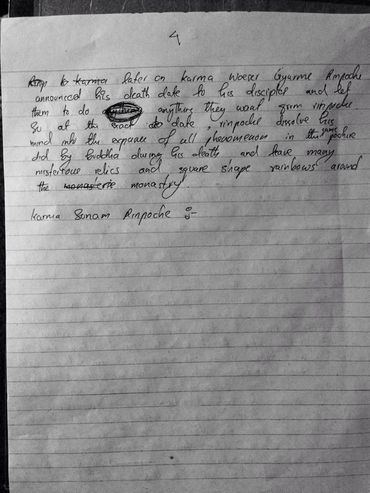 4
to karma later on karma Woeser Gyurme Rinpoche
announced his death date to his disciple and let
them to do anything they want from rinpoche
So at the exact date, rinpoche dissolve his
mind into the expanse of all phenomenon in the same posture
did by buddha during his death and leave many
misterious relics and square shape rainbows around
the monastry.
Karma Sonam Rinpoche :-